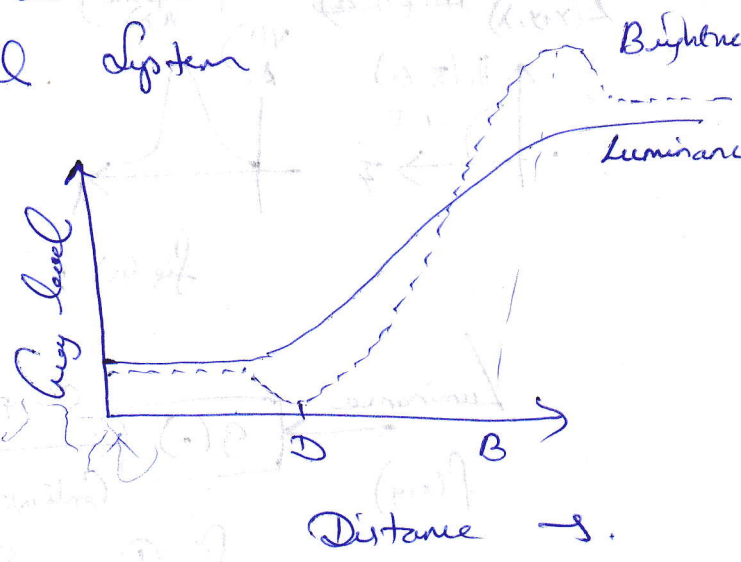 l. System
Brightne
Luminanc
Grey level
D
B
Distance →.